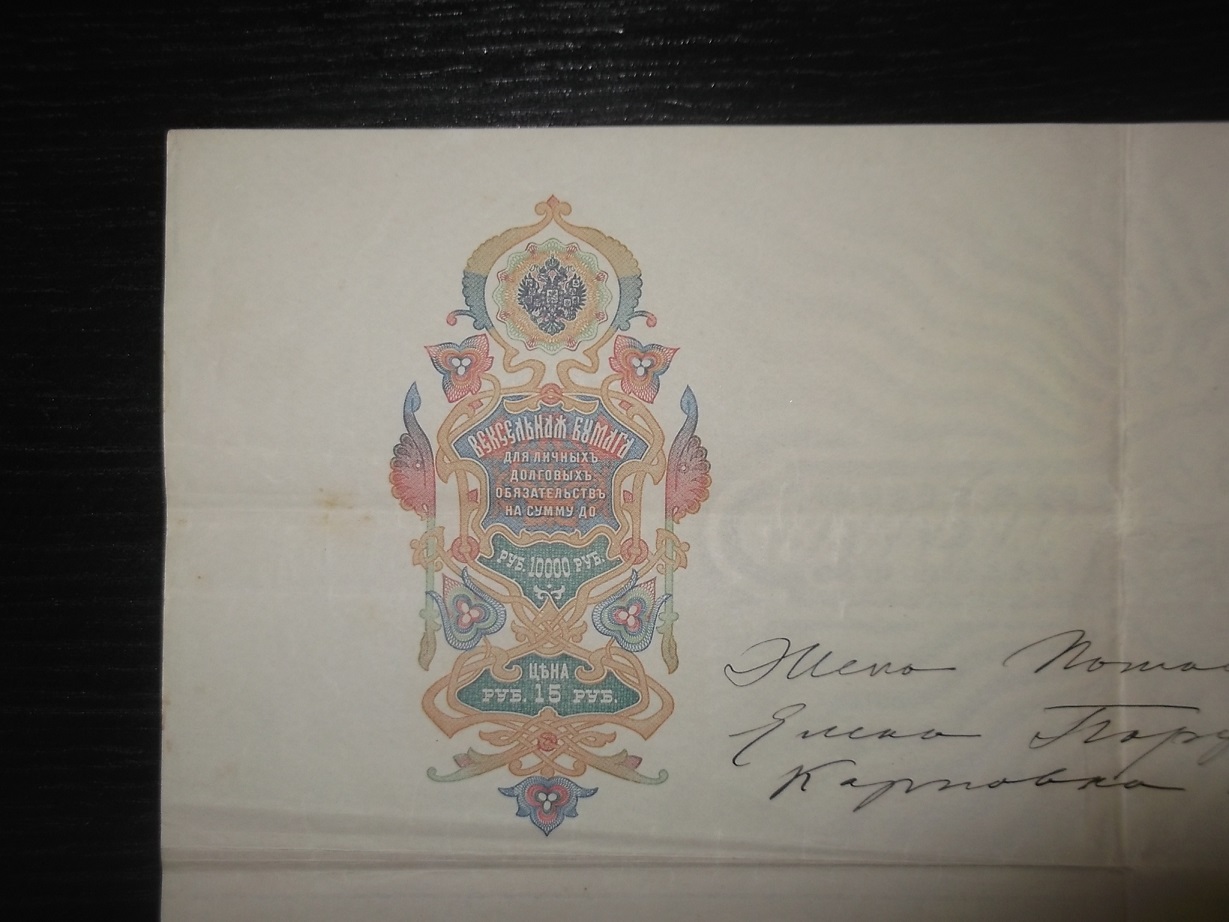 ВЕКСЕЛЬНАЯ БУМАГА
ДЛЯ ЛИЧНЫХЪ
ДОЛГОВЫХЪ
ОБЯЗАТЕЛЬСТВЪ
НА СУММУ ДО
РУБ. 10000 РУБ.
ЦѢНА
РУБ. 15 РУБ.
Жена
Елена
Карповна